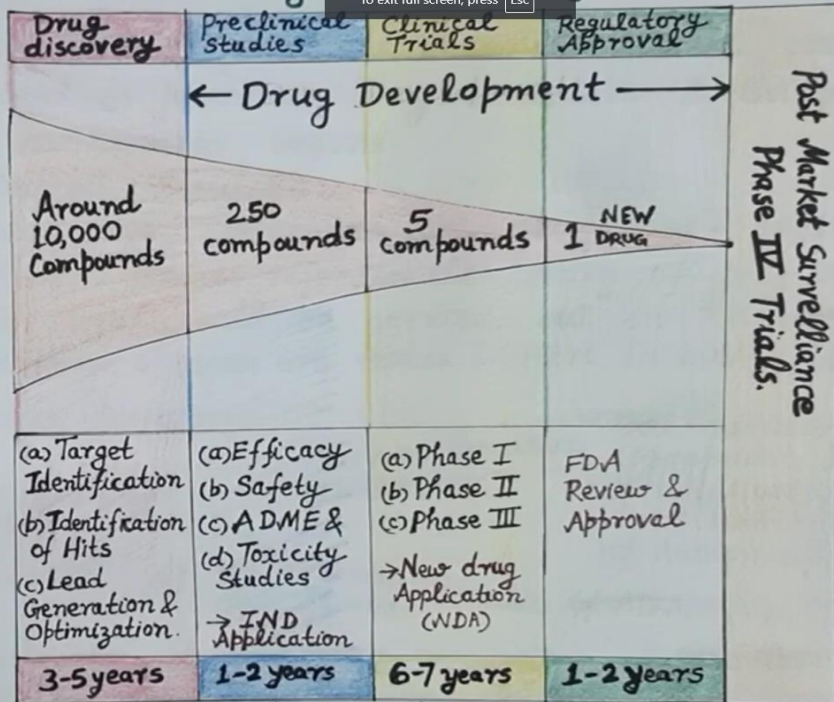 To exit full screen, press Esc
Drug
discovery
Preclinical
studies
Clinical
Trials
Regulatory
Approval
← Drug Development →
Around
10,000
Compounds
250
compounds
5
compounds
NEW
1 DRUG
Post Market Survelliance
Phase IV Trials.
(a) Target
Identification
(b) Identification
of Hits
(c) Lead
Generation &
Optimization.
(a) Efficacy
(b) Safety
(c) ADME &
(d) Toxicity
Studies
→ IND
Application
(a) Phase I
(b) Phase II
(c) Phase III
→ New drug
Application
(NDA)
FDA
Review &
Approval
3-5 years
1-2 years
6-7 years
1-2 years